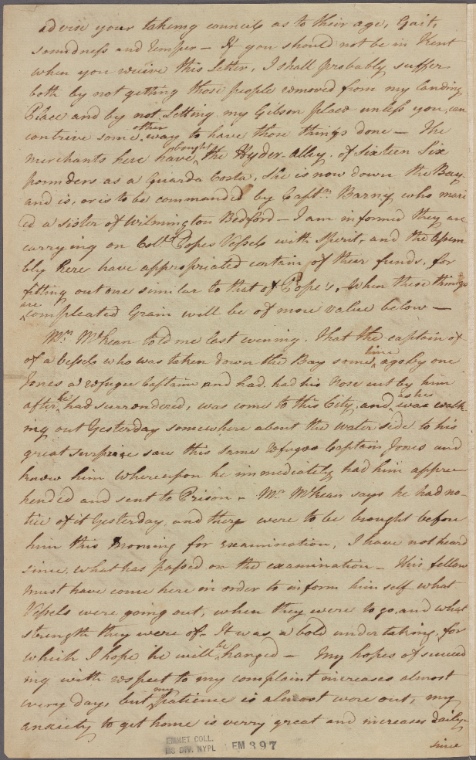 advise your takeing councels as to their age, Gait,
soundness and Temper – If you should not be in Kent
when you receive this Letter, I shall probably suffer
both by not getting those people removed from my landing
Place and by not Setting my Gilson place unless you can
contrive some other way to have those things done – The
merchants here have bought the Hyder-alley of Sixteen Six
pounders as a Guarda Costa, she is now down the Bay,
and is, or is to be commanded by Captn. Barny, who mari
ed a sister of Wilmington Bedford – I am informed they are
carrying on Collo. Popes Vessels with Spirit, and the Assem
bly here have appropriated certain of their funds, for
fitting out one similar to that of Pope's, when these things
are compleated Grain will be of more value below –
Mrs. McKean told me last evening. That the captain of
of a vessels who was taken down the Bay some time ago by one
Jones a refugee Captain and had had his Nose cut by him
after he had surrendered, was come to this City, and as he was walk
ing out Yesterday somewhere about the water side to his
great surprize saw this same refugee Captain Jones and
knew him whereupon he immediately had him appre
hended and sent to Prison – Mr. McKean says he had no
tice of it Yesterday, and they were to be brought before
him this morning for examination, I have not heard
since what has passed on the examination – This fellow
must have come here in order to inform him self what
Vessels were going out, when they were to go, and what
strength they were of – It was a bold undertaking, for
which I hope he will be hanged – My hopes of succeed
ing with respect to my complaint increases almost
every day, but my Patience is almost wore out, my
anxiety to get home is verry great and increases daily
since
EMMET COLL.
MS DIV. NYPL
EM 397